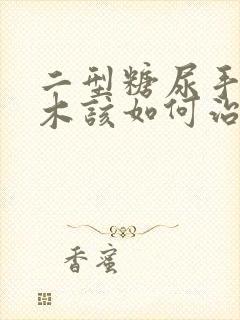 二型糖尿手
木该如何治
香蜜